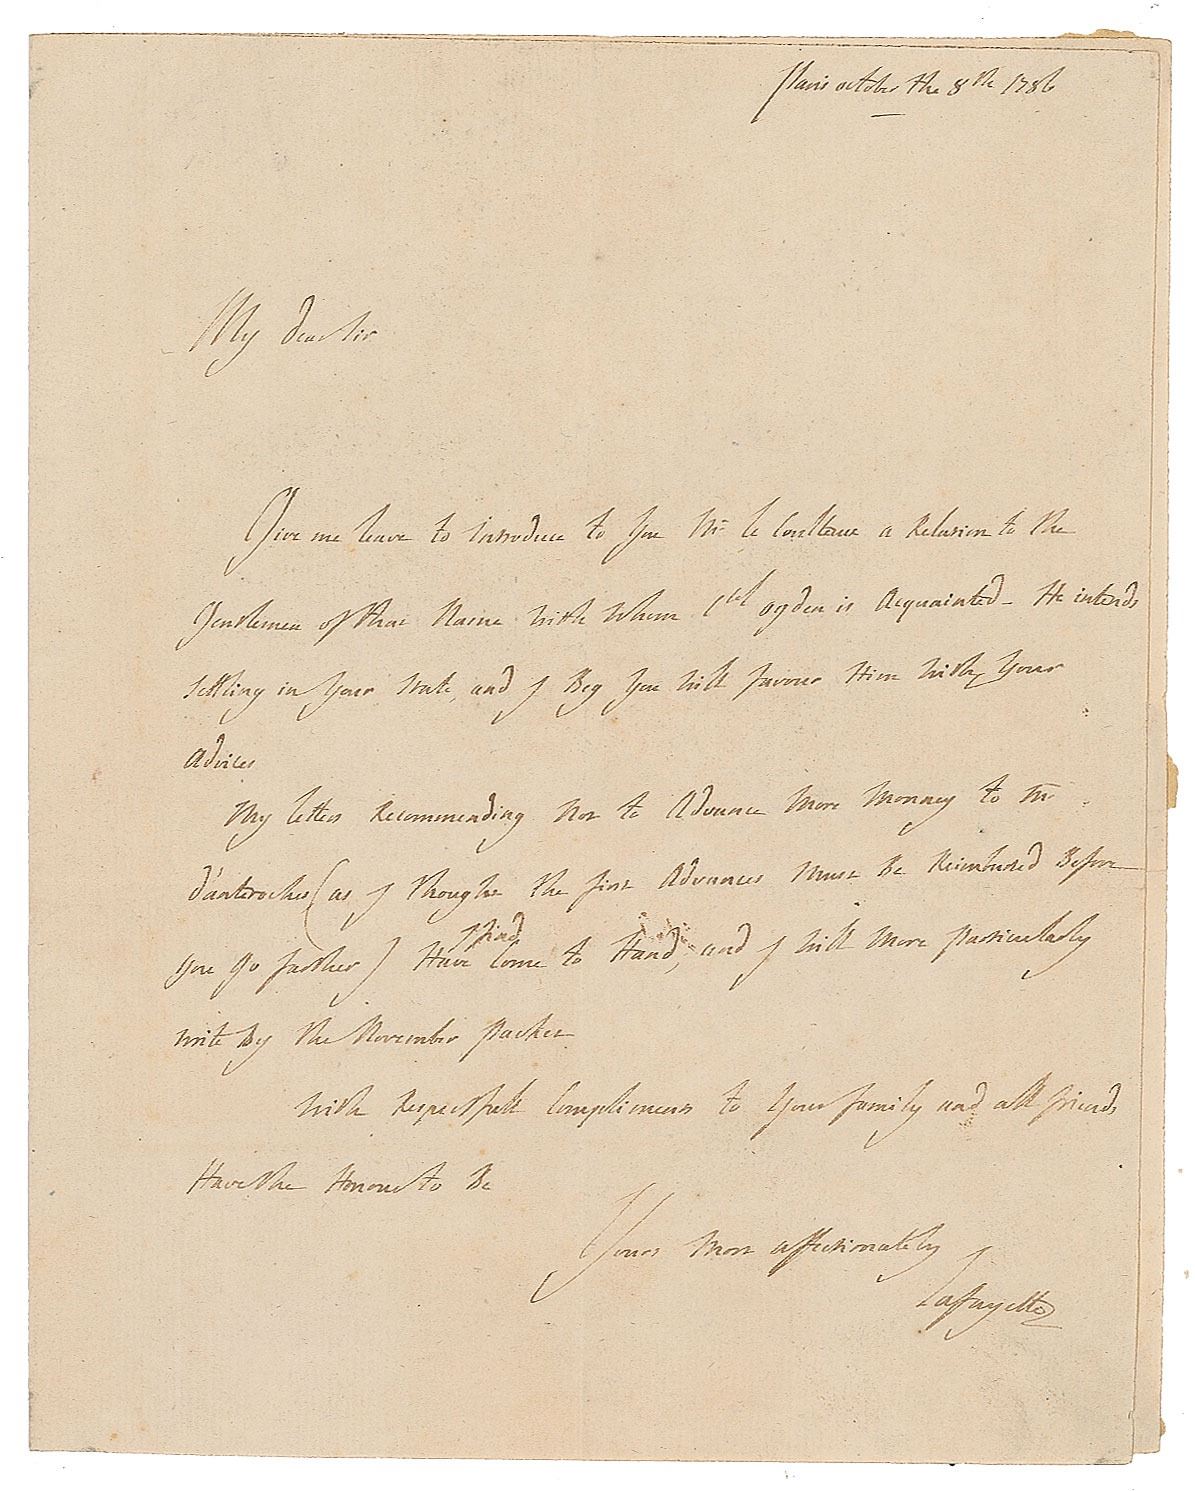 Paris october the 8th 1786
My dear Sir
Give me leave to introduce to You Mr le Coulteux a Relation to the
Gentlemen of that Name with Whom Cel Ogden is Acquainted - He intends
settling in Your State, and I Beg You will favour Him with Your
Advices
My letters Recommending Not to Advance More Monney to Mr
d'anteroches (as I thought the first Advances Must Be Reimbursed Before
You go farther) Have I find Come to Hand, and I will More particularly
write By the November packet
With Respectfull Compliments to Your family and all friends
Have the Honour to Be
Yours Most affectionately
Lafayette